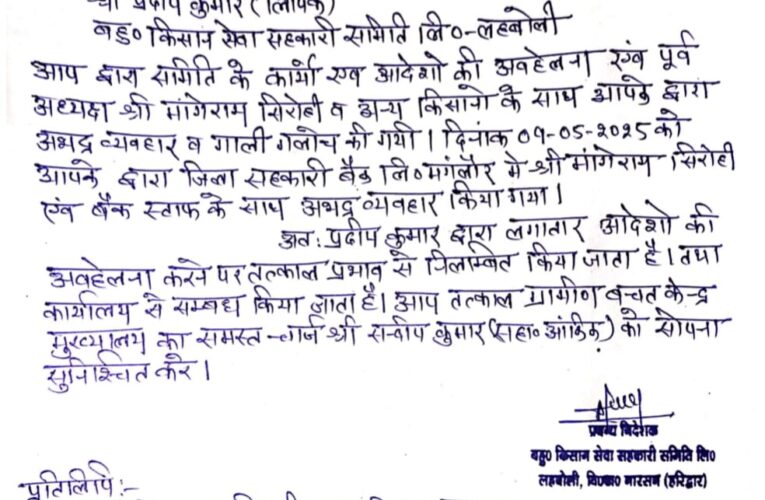 श्री प्रदीप कुमार (लिपिक)
बहु० किसान सेवा सहकारी समिति लि०-लहबोली
आप द्वारा समिति के कार्यो एंव आदेशो की अवहेलना एंव पूर्व
अध्यक्ष श्री मांगेराम सिरोही व अन्य किसानो के साथ आपके द्वारा
अभद्र व्यवहार व गाली गलोच की गयी। दिनांक 09-05-2025 को
आपके द्वारा जिला सहकारी बैंक लि० मंगलौर मे श्री मांगेराम सिरोही
एंव बैंक स्टाफ के साथ अभद्र व्यवहार किया गया।
अत: प्रदीप कुमार द्वारा लगातार आदेशो की
अवहेलना करने पर तत्काल प्रभाव से निलम्बित किया जाता है। तथा
कार्यालय से सम्बध किया जाता है। आप तत्काल ग्रामीण बचत केन्द्र
मुख्यालय का समस्त चार्ज श्री सन्दीप कुमार (सहा० आंकिक) को सोपना
सुनिश्चित करे।
प्रबन्ध निदेशक
बहु० किसान सेवा सहकारी समिति लि०
लहबोली, वि०ख० नारसन (हरिद्वार)
प्रतिलिपि:-